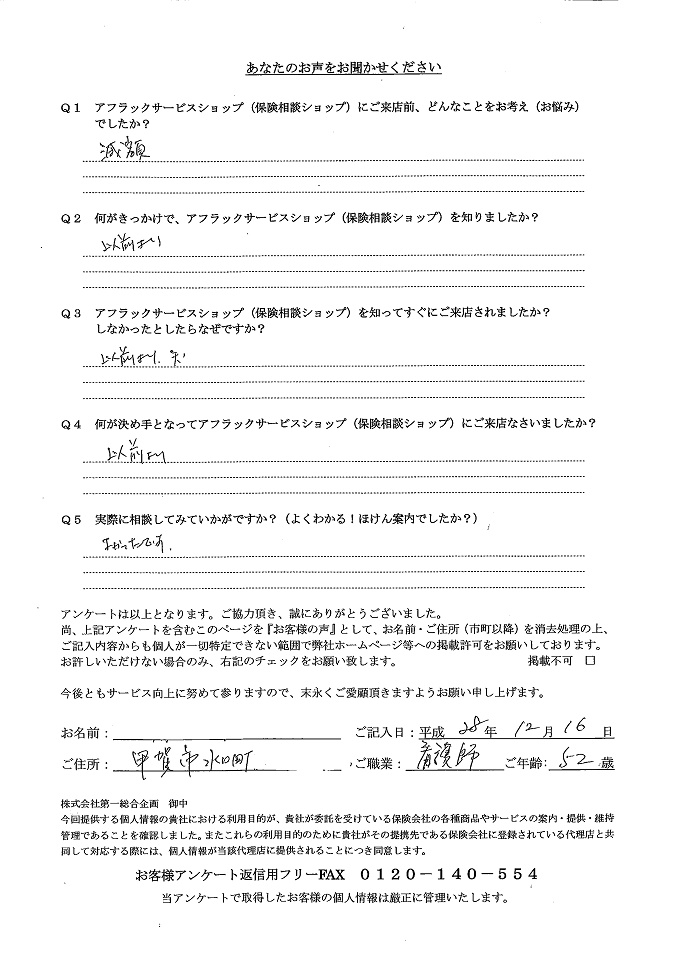 あなたのお声をお聞かせください
Q1 アフラックサービスショップ（保険相談ショップ）にご来店前、どんなことをお考え（お悩み）
でしたか？
減額
Q2 何がきっかけで、アフラックサービスショップ（保険相談ショップ）を知りましたか？
以前より
Q3 アフラックサービスショップ（保険相談ショップ）を知ってすぐにご来店されましたか？
しなかったとしたらなぜですか？
以前より、
Q4 何が決め手となってアフラックサービスショップ（保険相談ショップ）にご来店なさいましたか？
以前より
Q5 実際に相談してみていかがですか？（よくわかる！ほけん案内でしたか？）
よかったです。
アンケートは以上となります。ご協力頂き、誠にありがとうございました。
尚、上記アンケートを含むこのページを『お客様の声』として、お名前・ご住所（市町以降）を消去処理の上、
ご記入内容からも個人が一切特定できない範囲で弊社ホームページ等への掲載許可をお願いしております。
お許しいただけない場合のみ、右記のチェックをお願い致します。 掲載不可 □
今後ともサービス向上に努めて参りますので、末永くご愛顧頂きますようお願い申し上げます。
お名前： ご記入日：平成 28 年 12 月 16 日
ご住所： 甲賀市水口町 ご職業： 看護師 ご年齢： 52 歳
株式会社第一総合企画 御中
今回提供する個人情報の貴社における利用目的が、貴社が委託を受けている保険会社の各種商品やサービスの案内・提供・維持
管理であることを確認しました。またこれらの利用目的のために貴社がその提携先である保険会社に登録されている代理店と共
同して対応する際には、個人情報が当該代理店に提供されることにつき同意します。
お客様アンケート返信用フリーFAX 0120－140－554
当アンケートで取得したお客様の個人情報は厳正に管理いたします。